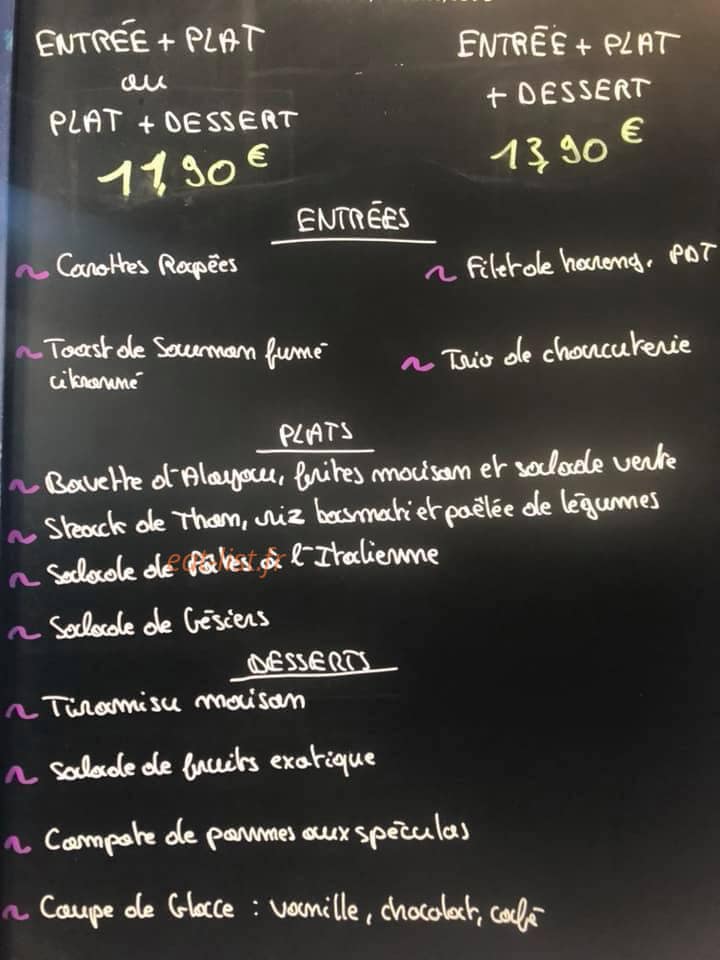 ENTRÉE + PLAT
ou
PLAT + DESSERT
11,90 €
ENTRÉE + PLAT
+ DESSERT
13,90 €
ENTRÉES
~ Carottes Rapées
~ Filet de hareng, PDT
~ Toast de Saumon fumé
citronné
~ Trio de charcuterie
PLATS
~ Bavette d'Aloyau, frites maison et salade verte
~ Steack de Thon, riz basmati et paêlée de légumes
~ Salade de Pâtes à l'Italienne
eat-list.fr
~ Salade de Gésiers
DESSERTS
~ Tiramisu maison
~ Salade de fruits exotique
~ Compote de pommes aux spéculos
~ Coupe de Glace : vanille, chocolat, café